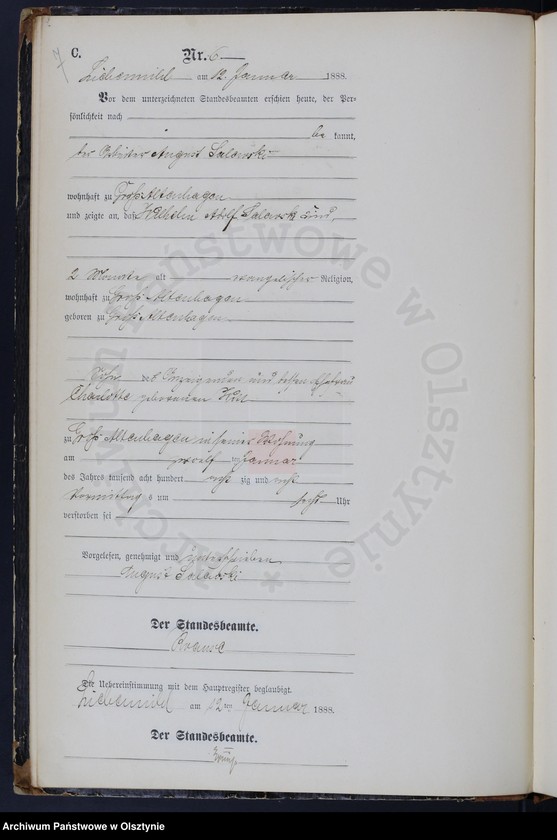 C.
Nr. 6
Liebemühl am 12. Januar 1888.
Vor dem unterzeichneten Standesbeamten erschien heute, der Per-
sönlichkeit nach
be kannt,
der Arbeiter August
wohnhaft zu Groß Altenhagen
und zeigte an, daß Wilhelm Adolf
2 Monate alt evangelischer Religion,
wohnhaft zu Groß Altenhagen
geboren zu Groß Altenhagen
Sohn des Anzeigenden und dessen Ehefrau
Charlotte geborenen
zu Groß Altenhagen in seiner Wohnung
am zwölften Januar
des Jahres tausend acht hundert acht zig und acht
Vormittags um sechs Uhr
verstorben sei
Vorgelesen, genehmigt und unterschrieben
August
Der Standesbeamte.
Die Uebereinstimmung mit dem Hauptregister beglaubigt.
Liebemühl am 12ten Januar 1888.
Der Standesbeamte.
Archiwum Państwowe w Olsztynie
Archiwum Państwowe w Olsztynie